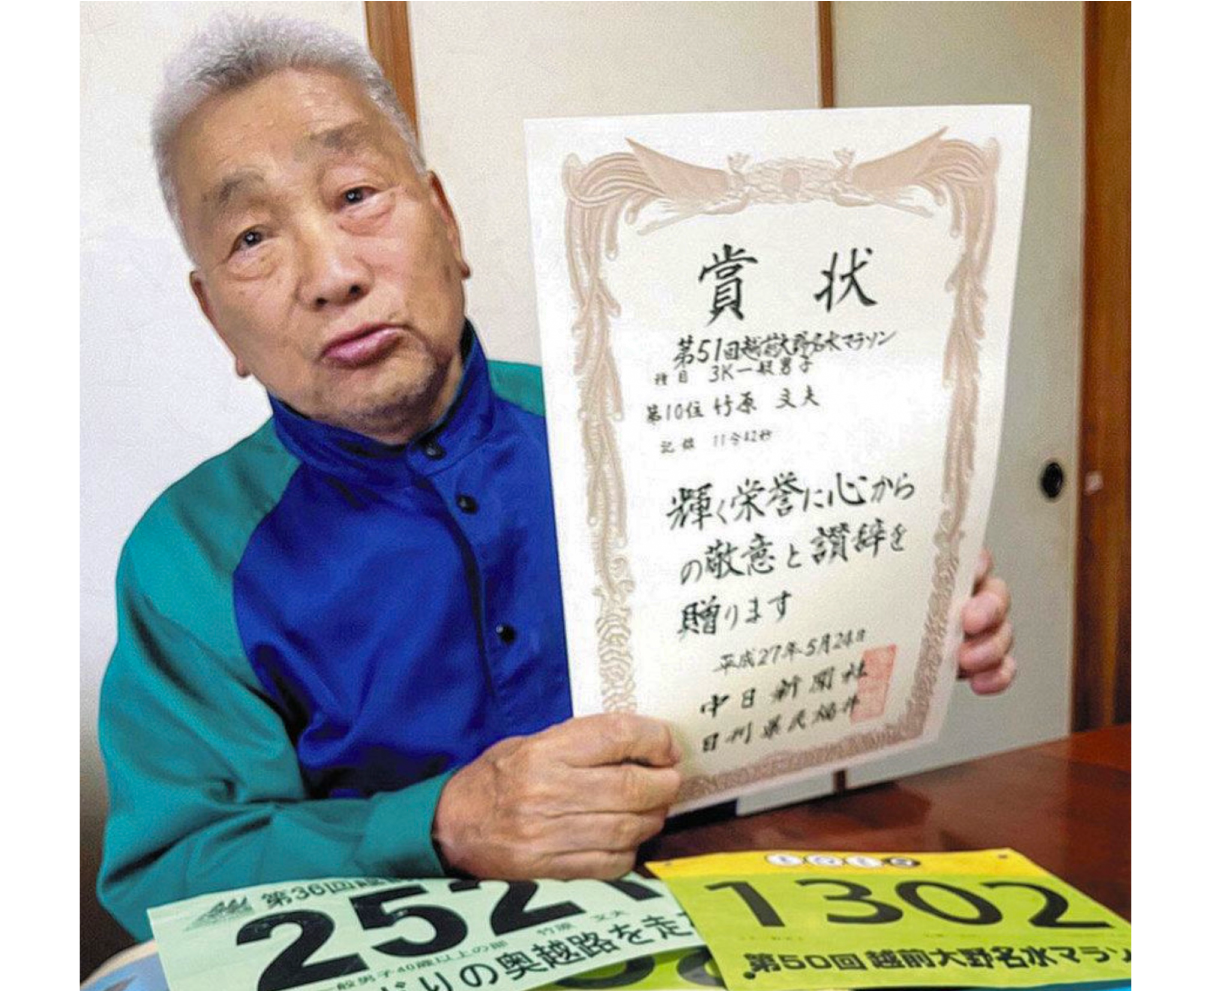 賞 状
第51回越前大野名水マラソン
種目 3K一般男子
第10位 竹原 文夫
記録 11分42秒
輝く栄誉に心から
の敬意と讃辞を
贈ります
平成27年5月24日
中日新聞社
日刊県民福井
第36回
2521
竹原 文夫
一般男子40歳以上の部
りの奥越路を走
1302
第50回越前大野名水マラソ